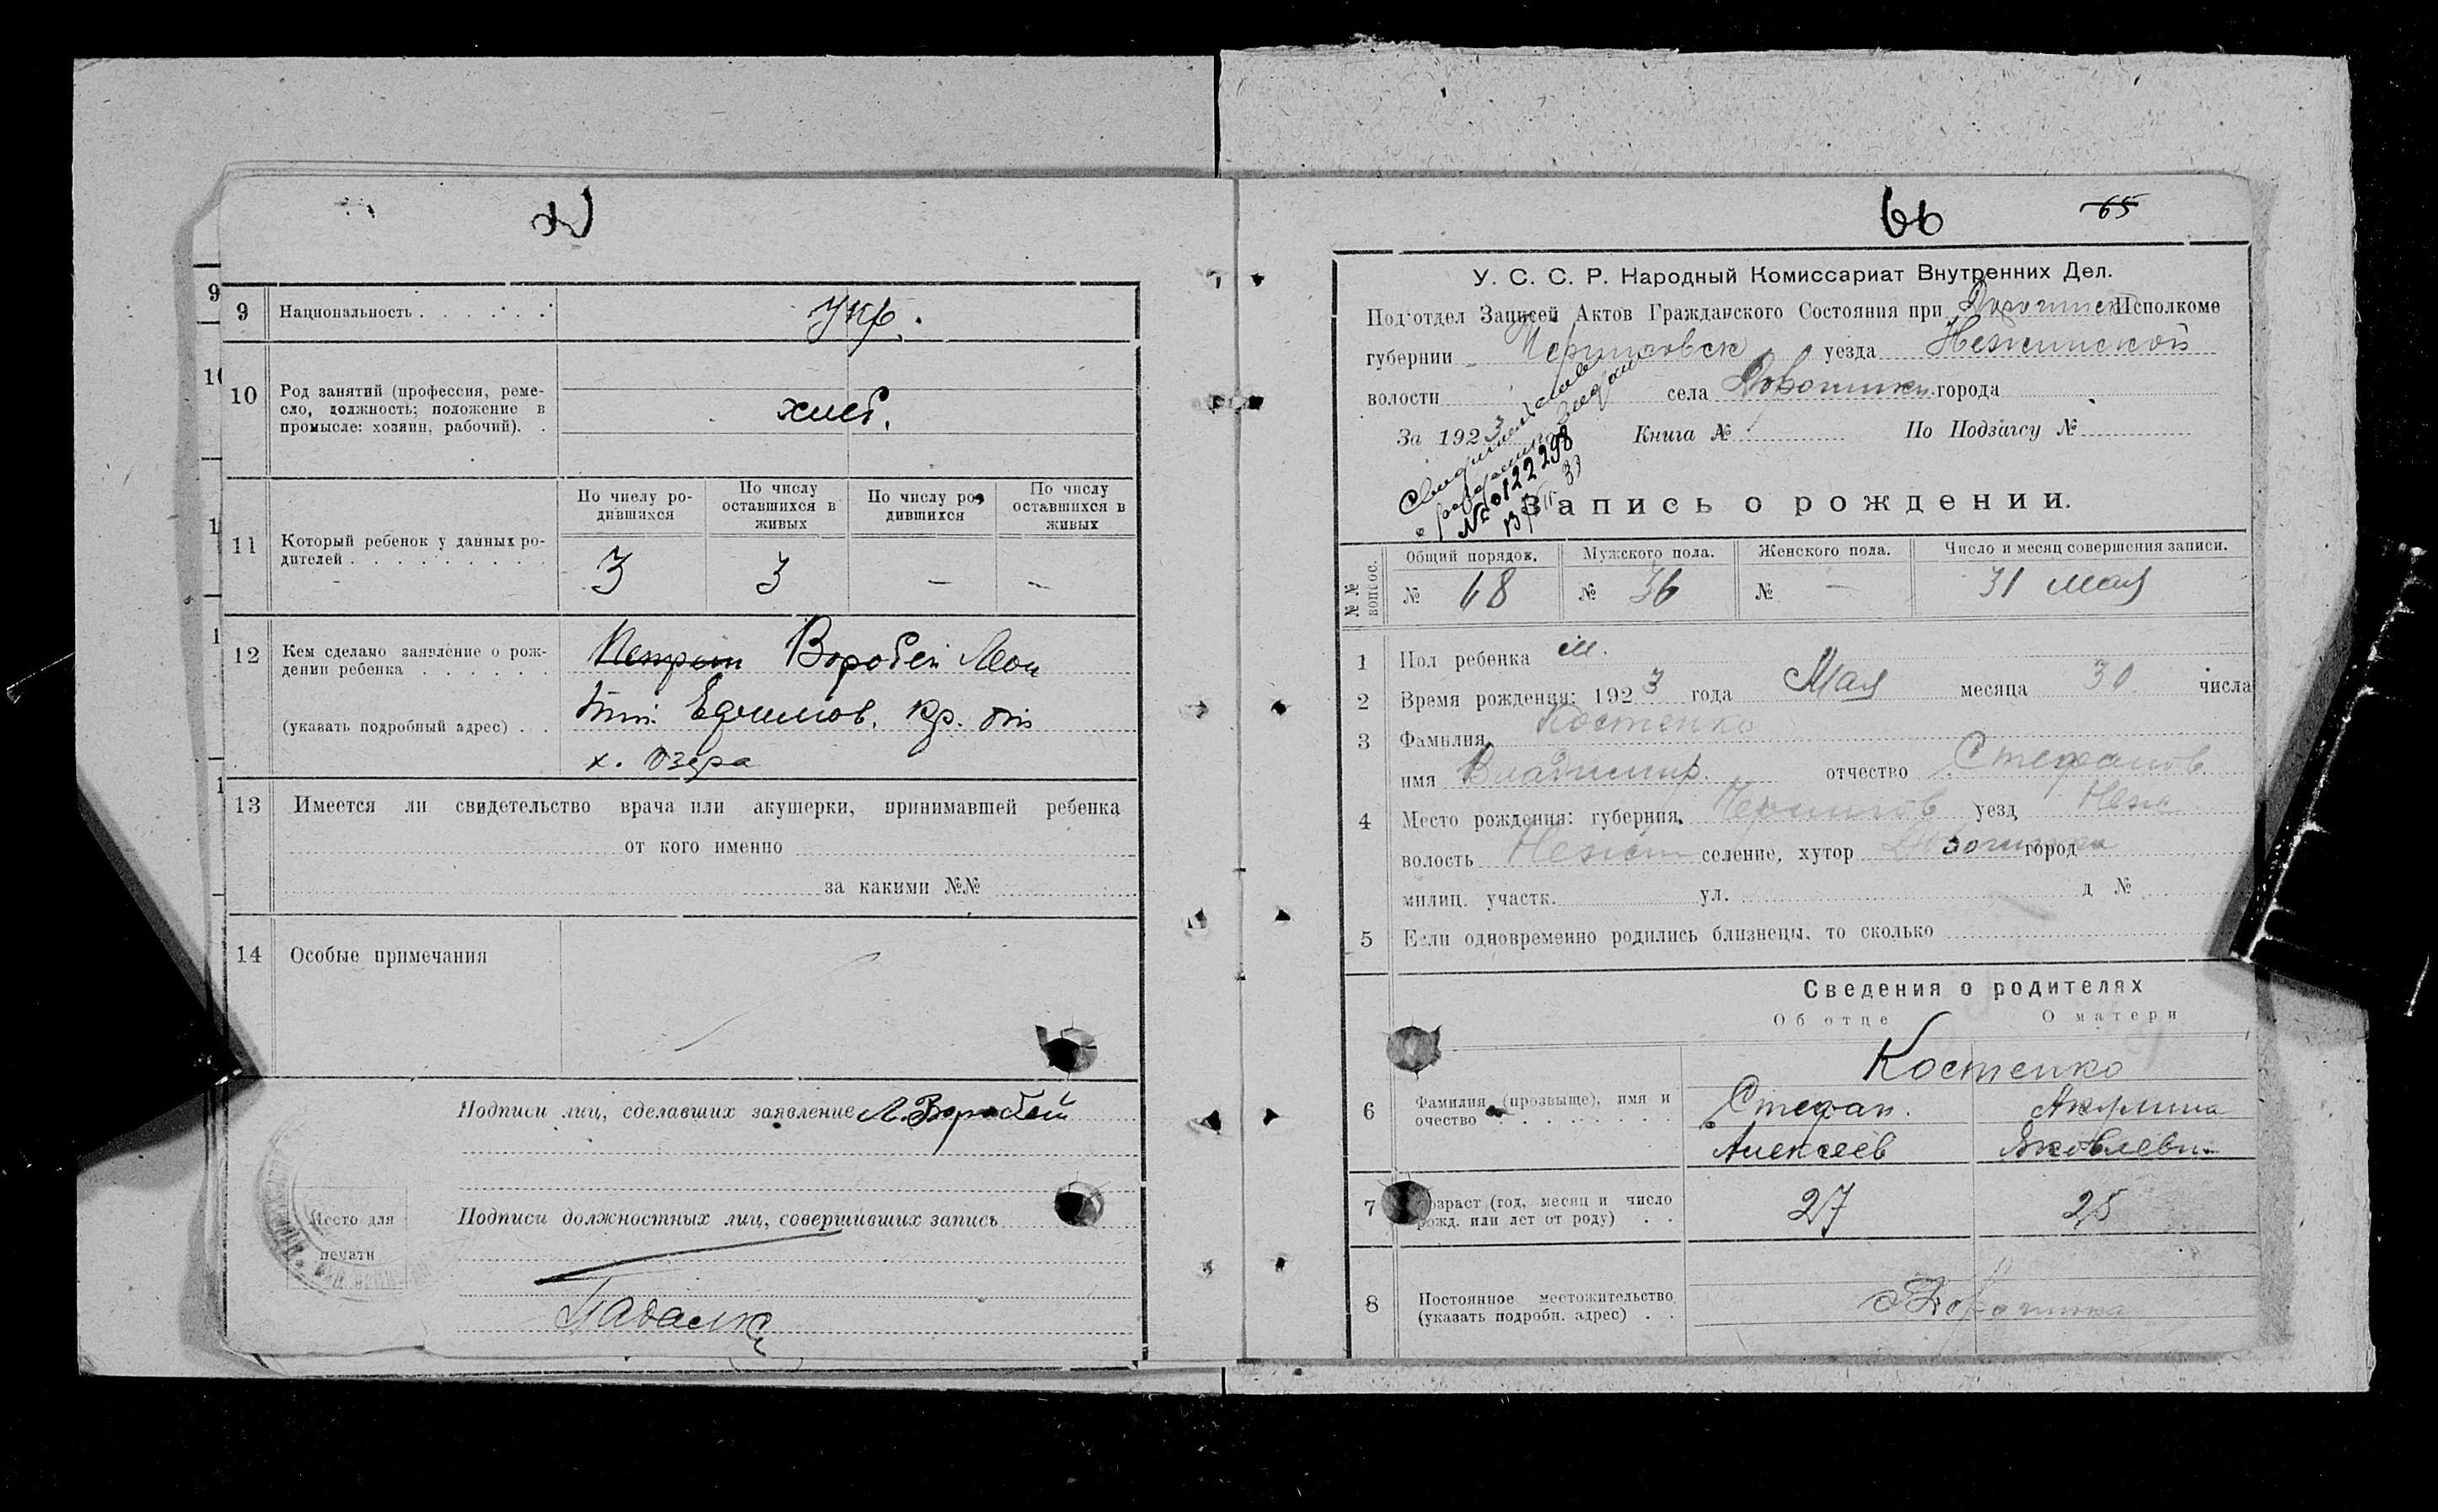 9 Национальность укр.
10 Род занятий (профессия, реме-
сло, должность; положение в
промысле: хозяин, рабочий). хлеб.
11 Который ребенок у данных ро-
дителей
По числу ро-
дившихся
По числу
оставшихся в
живых
По числу ро-
дившихся
По числу
оставшихся в
живых
3 3 — —
12 Кем сделано заявление о рож-
дении ребенка Воробей Леон
(указать подробный адрес) Ефимов. кр.
х. Озера
13 Имеется ли свидетельство врача или акушерки, принимавшей ребенка
от кого именно
за какими №№
14 Особые примечания
Подписи лиц, сделавших заявление Л. Воробей
Место для
печати
Подписи должностных лиц, совершивших запись
9
10
1
1
1
66 65
У. С. С. Р. Народный Комиссариат Внутренних Дел.
Под'отдел Записей Актов Гражданского Состояния при Исполкоме
губернии Черниговск уезда Нежинской
волости села города
За 1923 Книга № По Подзагсу №
№ 0122298
Запись о рождении.
№ №
вопрос.
Общий порядок. Мужского пола. Женского пола. Число и месяц совершения записи.
№ 68 № 36 № — 31 мая
1 Пол ребенка м.
2 Время рождения: 1923 года Мая месяца 30 числа
3 Фамилия Костенко
имя Владимир отчество Стефанов
4 Место рождения: губерния Чернигов уезд Неж
волость селение, хутор город
милиц. участк. ул. д №
5 Если одновременно родились близнецы, то сколько
Сведения о родителях
Об отце О матери
Костенко
6 Фамилия (прозвище), имя и
очество
Стефан Акулина
Алексеев Яковлевн
7 Возраст (год, месяц и число
рожд. или лет от роду) 27 25
8 Постоянное местожительство
(указать подробн. адрес)